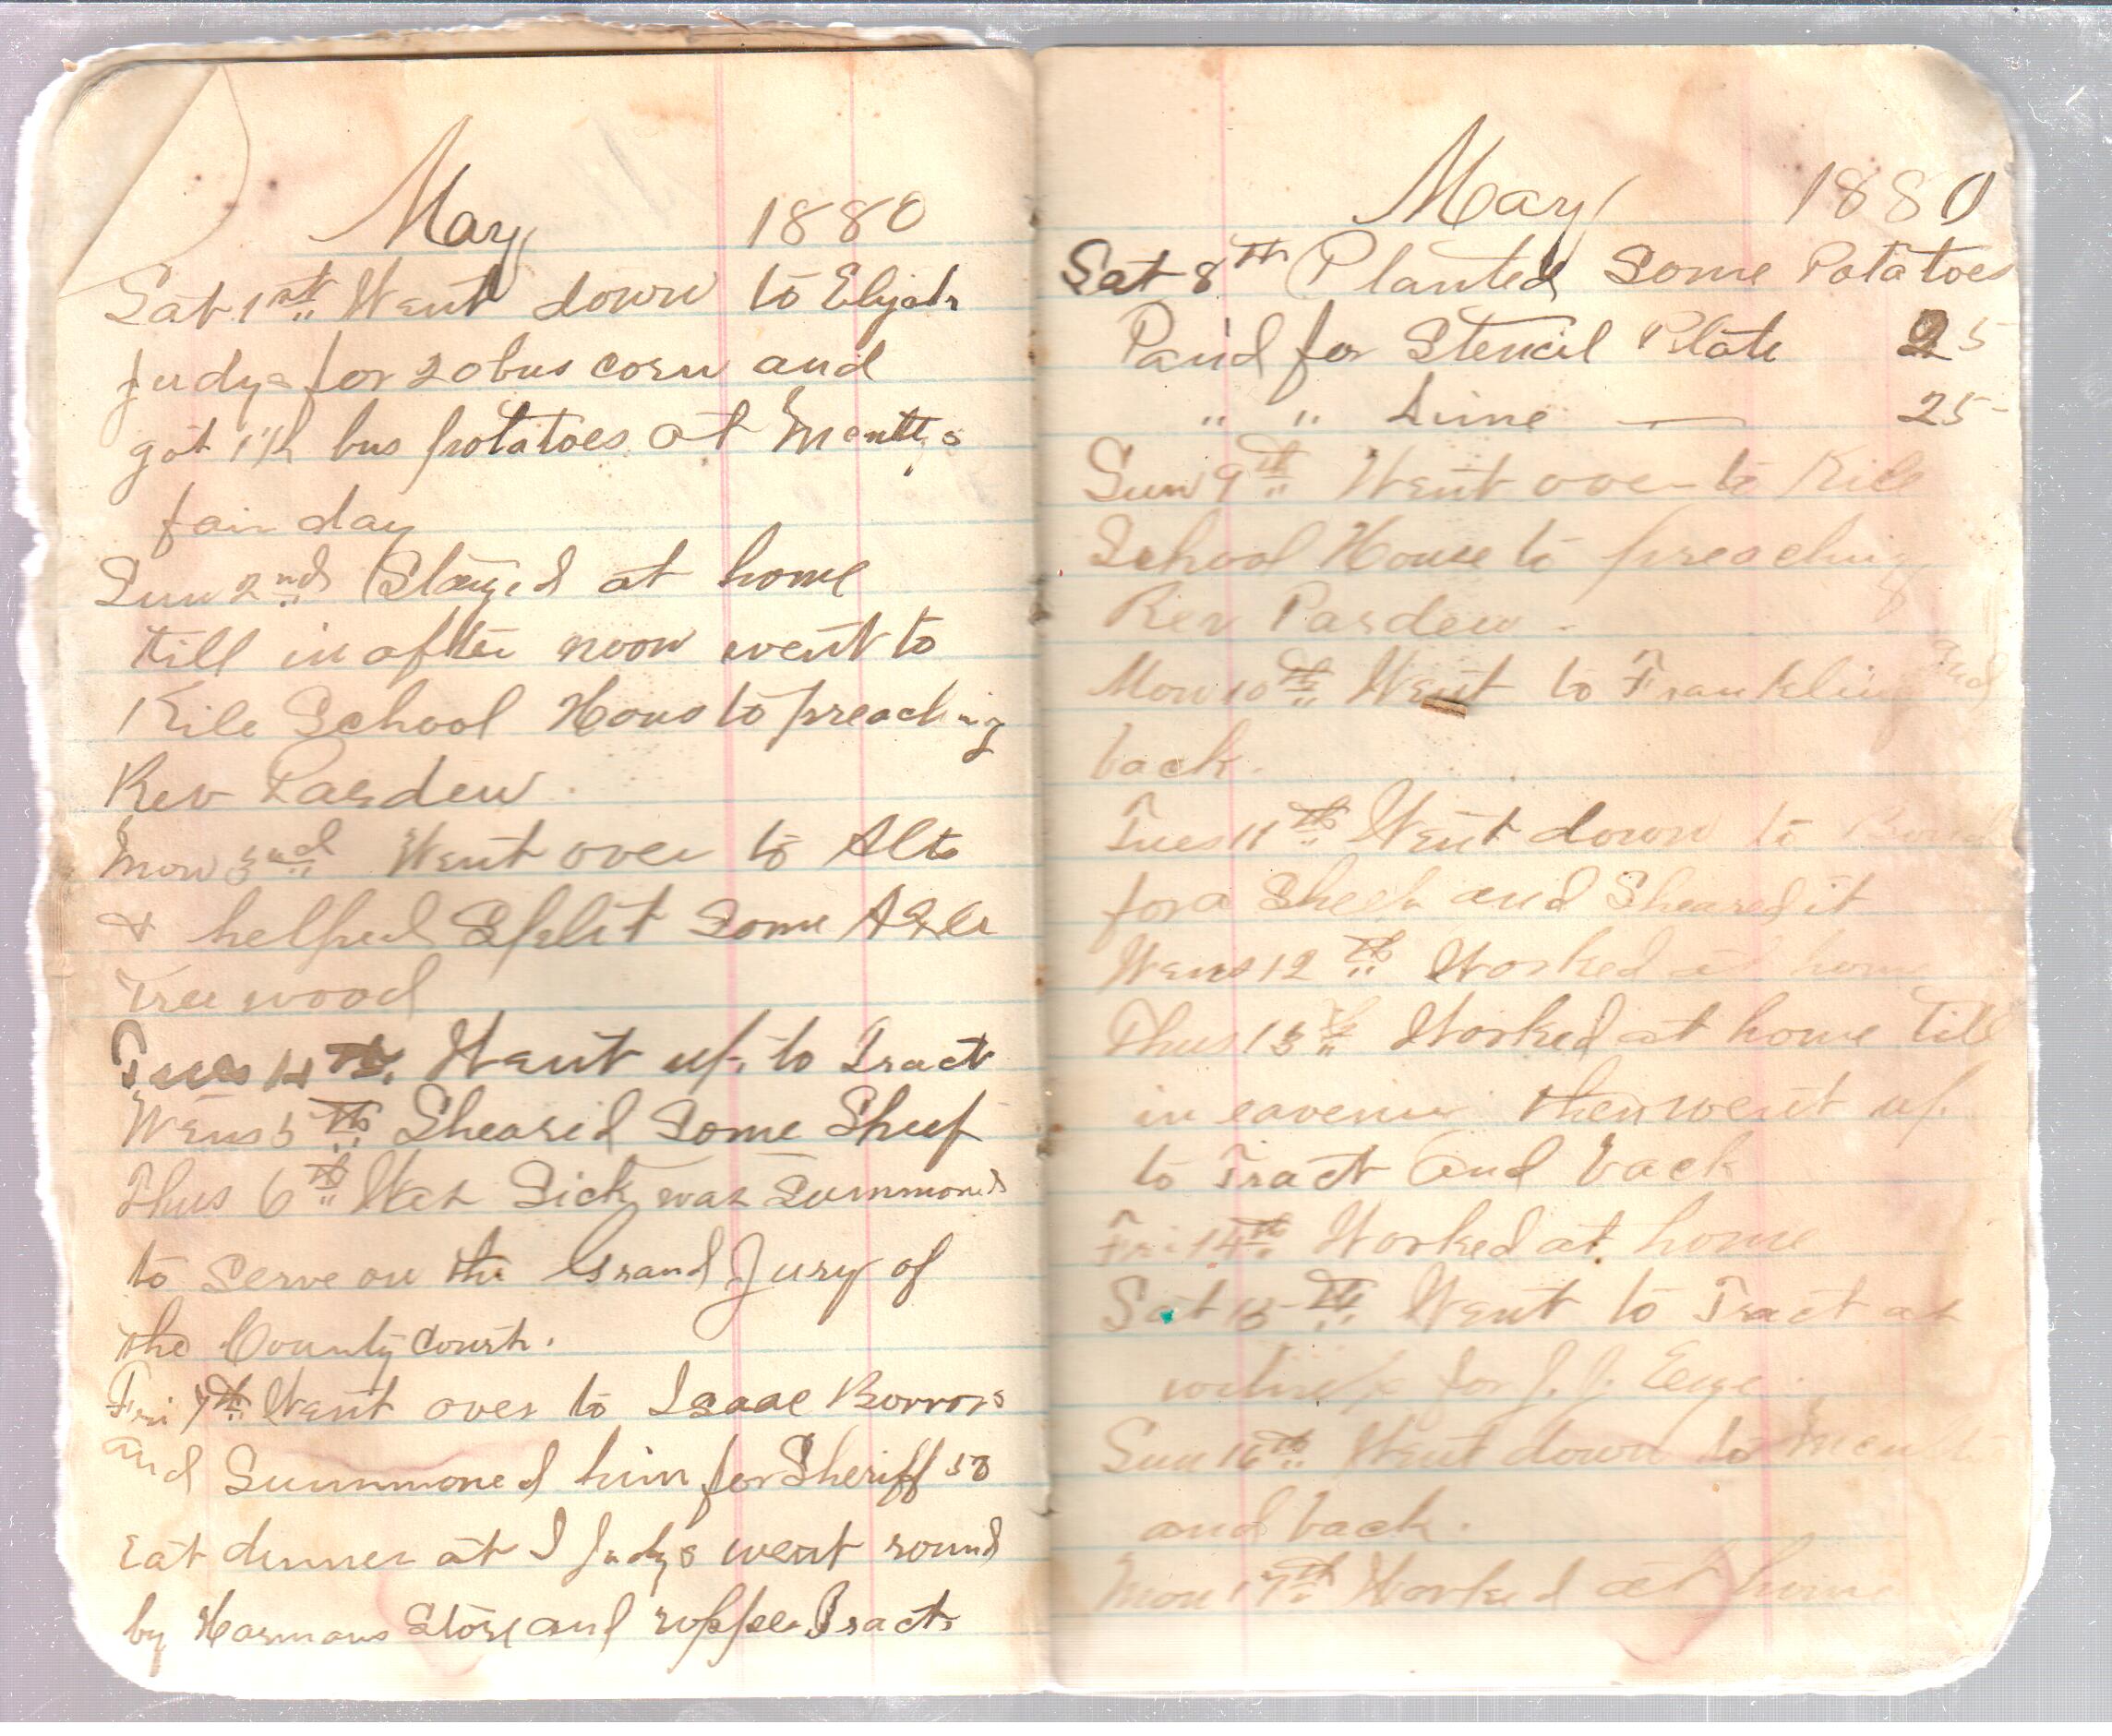 May 1880
Sat 1st Went down to Elijah
Judys for 20 bus corn and
got 1½ bus potatoes at
fair day
Sun 2nd Stayed at home
till in after noon went to
Kile School Hous to preaching
Rev Pasdew
Mon 3rd Went over to Alts
& helped Split Some Axle
Tree wood
Tues 4th. Went up to Tract
Wens 5th Sheared Some Sheep
Thus 6th Was Sick was Summoned
to Serve on the Grand Jury of
the County Court.
Fri 7th Went over to Isaac Borrors
and Summoned him for Sheriff
Eat dinner at I Judys went round
by Harmans Store and upper Tract
May 1880
Sat 8th Planted Some Potatoes
Paid for Stencil Plate 25
" " Lime — 25
Sun 9th Went over to Kile
School House to preaching
Rev Pasdew
Mon 10th Went to Franklin and
back.
Tues 11th Went down to
for a Sheep and Sheared it
Wens 12th Worked at home
Thus 13th Worked at home till
in eavenin then went up
to Tract and back
Fri 14th Worked at home
Sat 15th Went to Tract as
for J. J.
Sun 16th Went down to
and back.
Mon 17th Worked at home